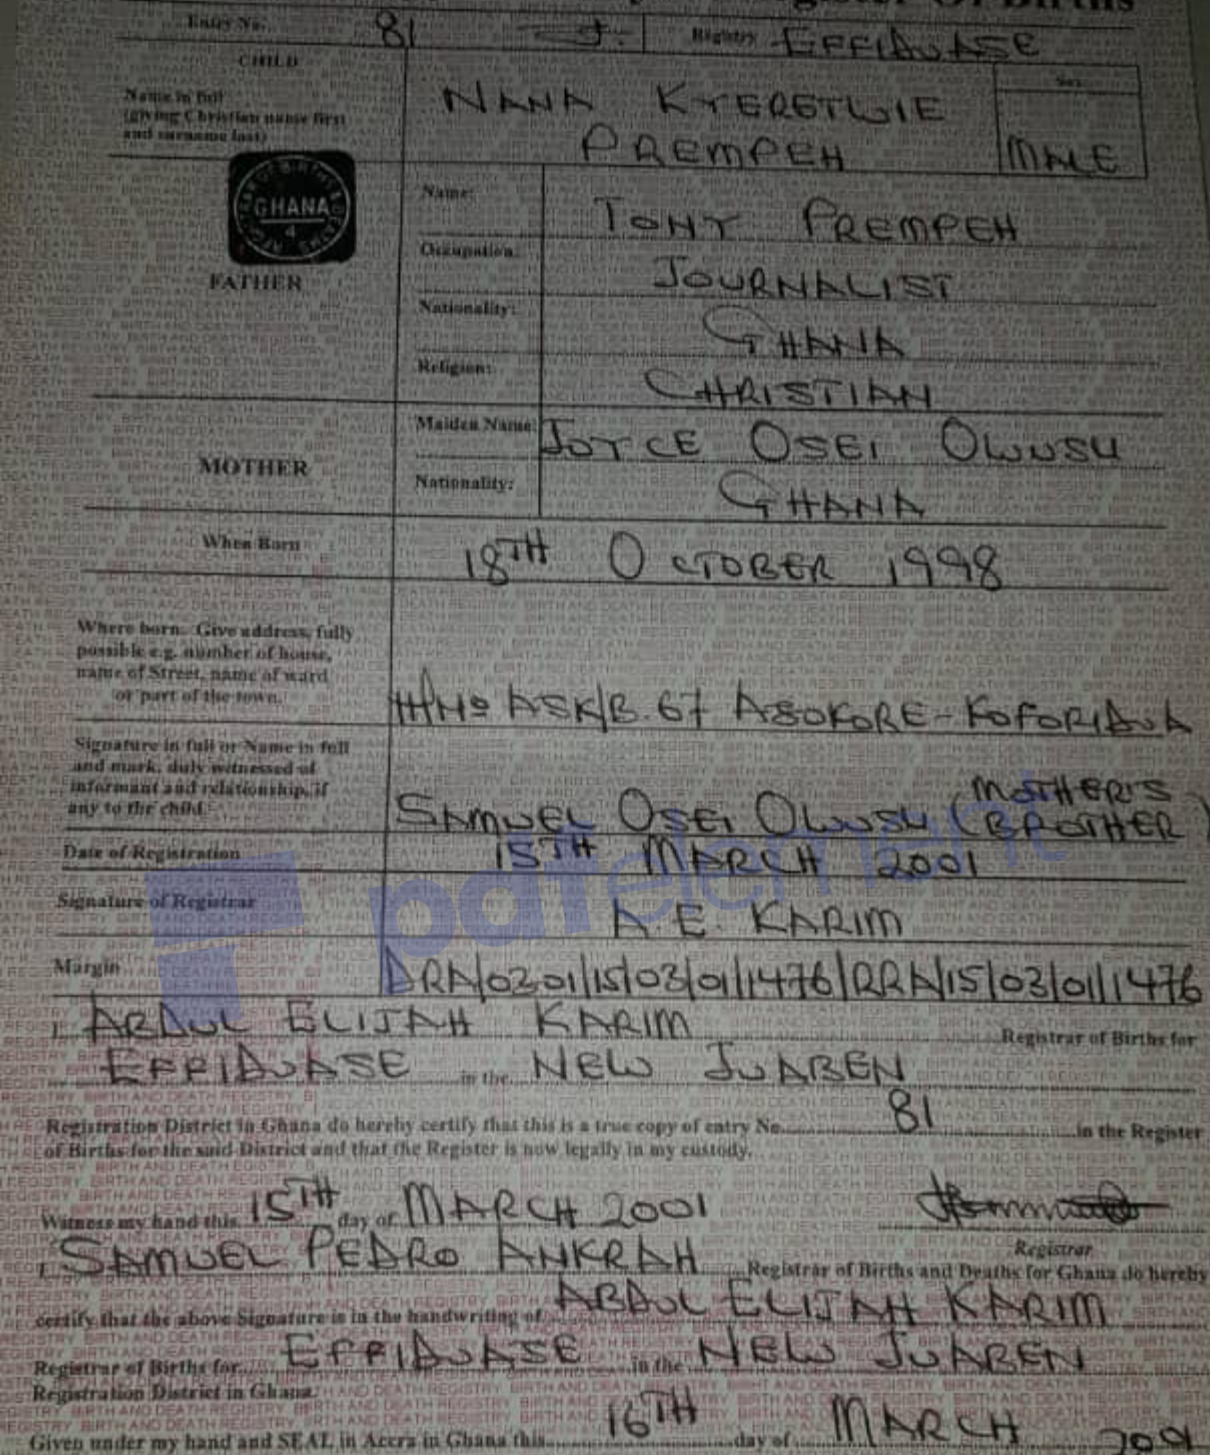 Register Of Births
Entry No. 81 Registry EFFIDUASE
CHILD
Name in full
(giving Christian name first
and surname last)
NANA KYERETWIE
PREMPEH
Sex
MALE
GHANA
4
FATHER
Name: TONY PREMPEH
Occupation: JOURNALIST
Nationality: GHANA
Religion: CHRISTIAN
MOTHER
Maiden Name: JOYCE OSEI OWUSU
Nationality: GHANA
When Born 18TH OCTOBER 1998
Where born. Give address, fully
possible e.g. number of house,
name of Street, name of ward
or part of the town.
H/No ASK/B.67 ASOKORE-KOFORIDUA
Signature in full or Name in full
and mark, duly witnessed of
informant and relationship, if
any to the child.
SAMUEL OSEI OWUSU (MOTHER'S
BROTHER)
Date of Registration 15TH MARCH 2001
pdfelement
Signature of Registrar A.E. KARIM
Margin DRA/0301/15/03/01/1476/RRA/15/03/01/1476
I, ABDUL ELIJAH KARIM Registrar of Births for
EFFIDUASE in the NEW JUABEN
Registration District in Ghana do hereby certify that this is a true copy of entry No. 81 in the Register
of Births for the said District and that the Register is now legally in my custody.
Witness my hand this 15TH day of MARCH 2001
Registrar
I, SAMUEL PEDRO ANKRAH Registrar of Births and Deaths for Ghana do hereby
certify that the above Signature is in the handwriting of ABDUL ELIJAH KARIM
Registrar of Births for EFFIDUASE in the NEW JUABEN
Registration District in Ghana.
Given under my hand and SEAL in Accra in Ghana this 16TH day of MARCH 2001